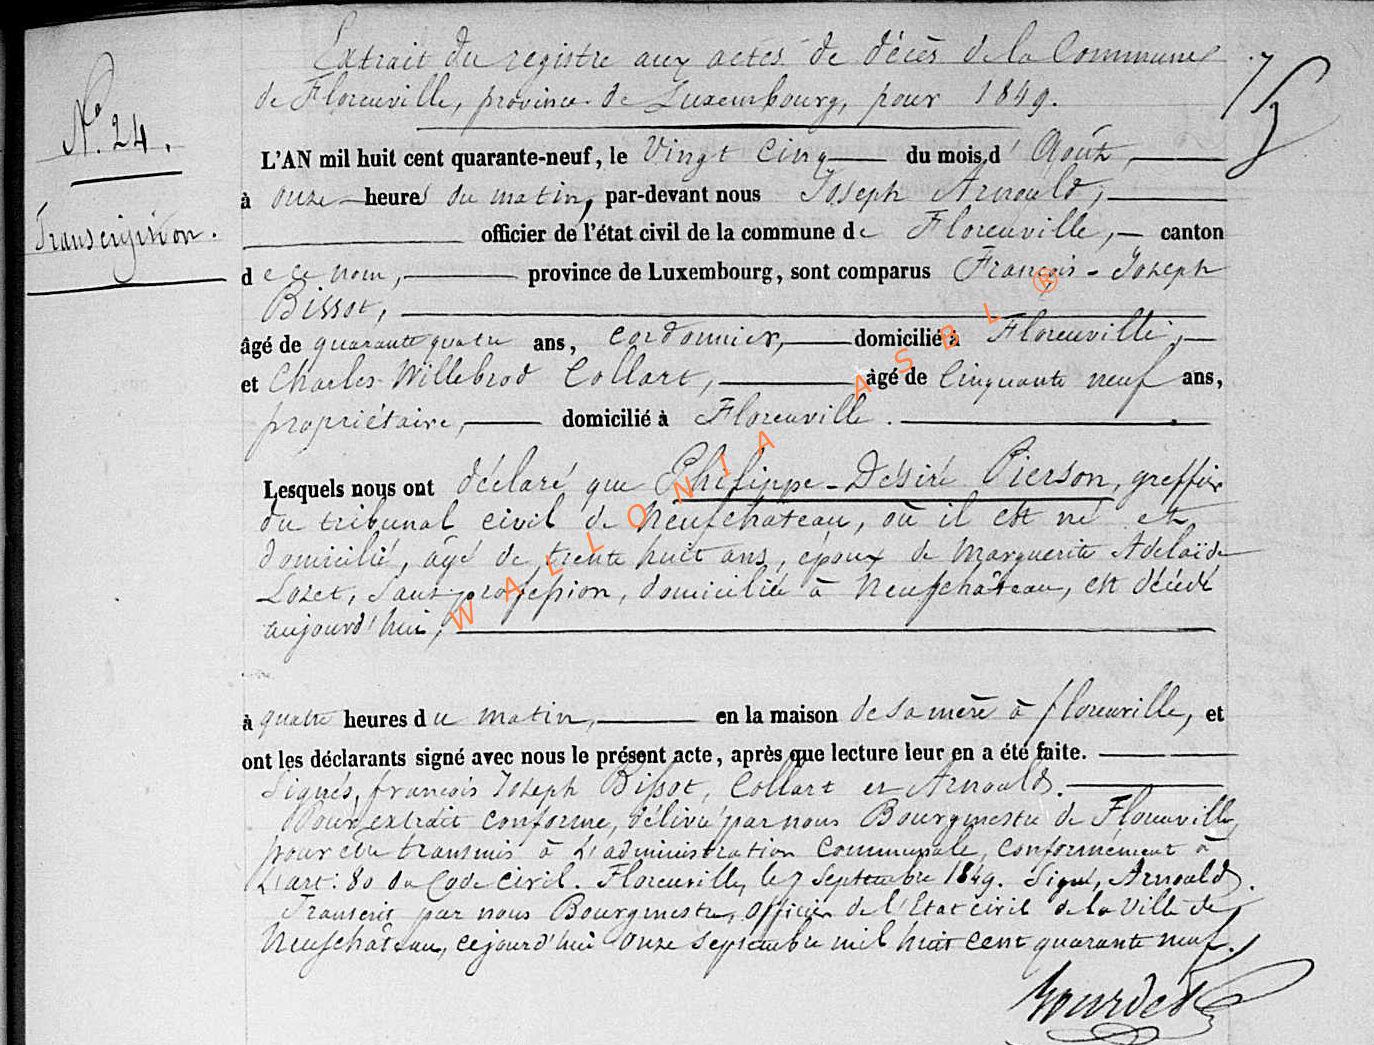 Extrait du registre aux actes de décès de la Commune
de Florenville, province de Luxembourg, pour 1849.
N.° 24.
Transcription.
L'AN mil huit cent quarante-neuf, le Vingt Cinq du mois d'Août,
à onze heures du matin, par-devant nous Joseph Arnould,
officier de l'état civil de la commune de Florenville, canton
de ce nom, province de Luxembourg, sont comparus François-Joseph
Bissot,
âgé de quarante quatre ans, cordonnier, domicilié à Florenville,
et Charles Willebrod Collart, âgé de Cinquante neuf ans,
propriétaire, domicilié à Florenville.
Lesquels nous ont déclaré que Philippe-Désiré Pierson, greffier
du tribunal civil de Neufchâteau, où il est né et
domicilié, âgé de trente huit ans, époux de Marguerite Adelaïde
Lozet, sans profession, domiciliée à Neufchâteau, est décédé
aujourd'hui,
à quatre heures du matin, en la maison de sa mère à florenville, et
ont les déclarants signé avec nous le présent acte, après que lecture leur en a été faite.
Signés, françois Joseph Bissot, Collart et Arnould.
Pour extrait conforme, délivré par nous Bourgmestre de Florenville,
pour être transmis à L'administration Communale, conformément à
L'art: 80 du Code civil. Florenville, le 7 Septembre 1849. Signé, Arnould.
Transcrit par nous Bourgmestre, Officier de l'Etat civil de la Ville de
Neufchâteau, cejourd'hui onze septembre mil huit cent quarante neuf.
WALLONIA ASBL ®